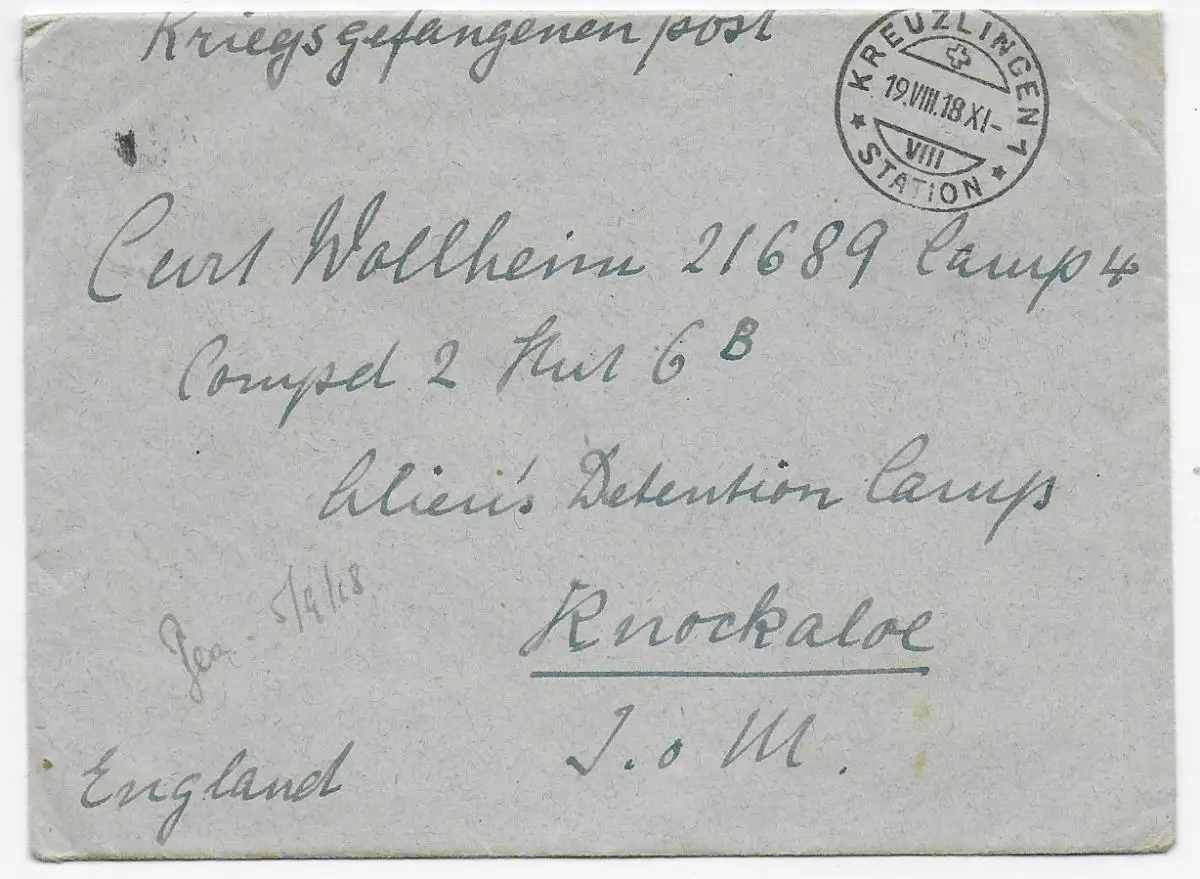 Kriegsgefangenenpost
KREUZLINGEN 1
19.VIII.18 XI-
VIII
STATION
Curt Wollheim 21689 Camp 4
Compd 2 Hut 6 B
Alien's Detention Camp
Knockaloe
I. o M.
5/9/18
England